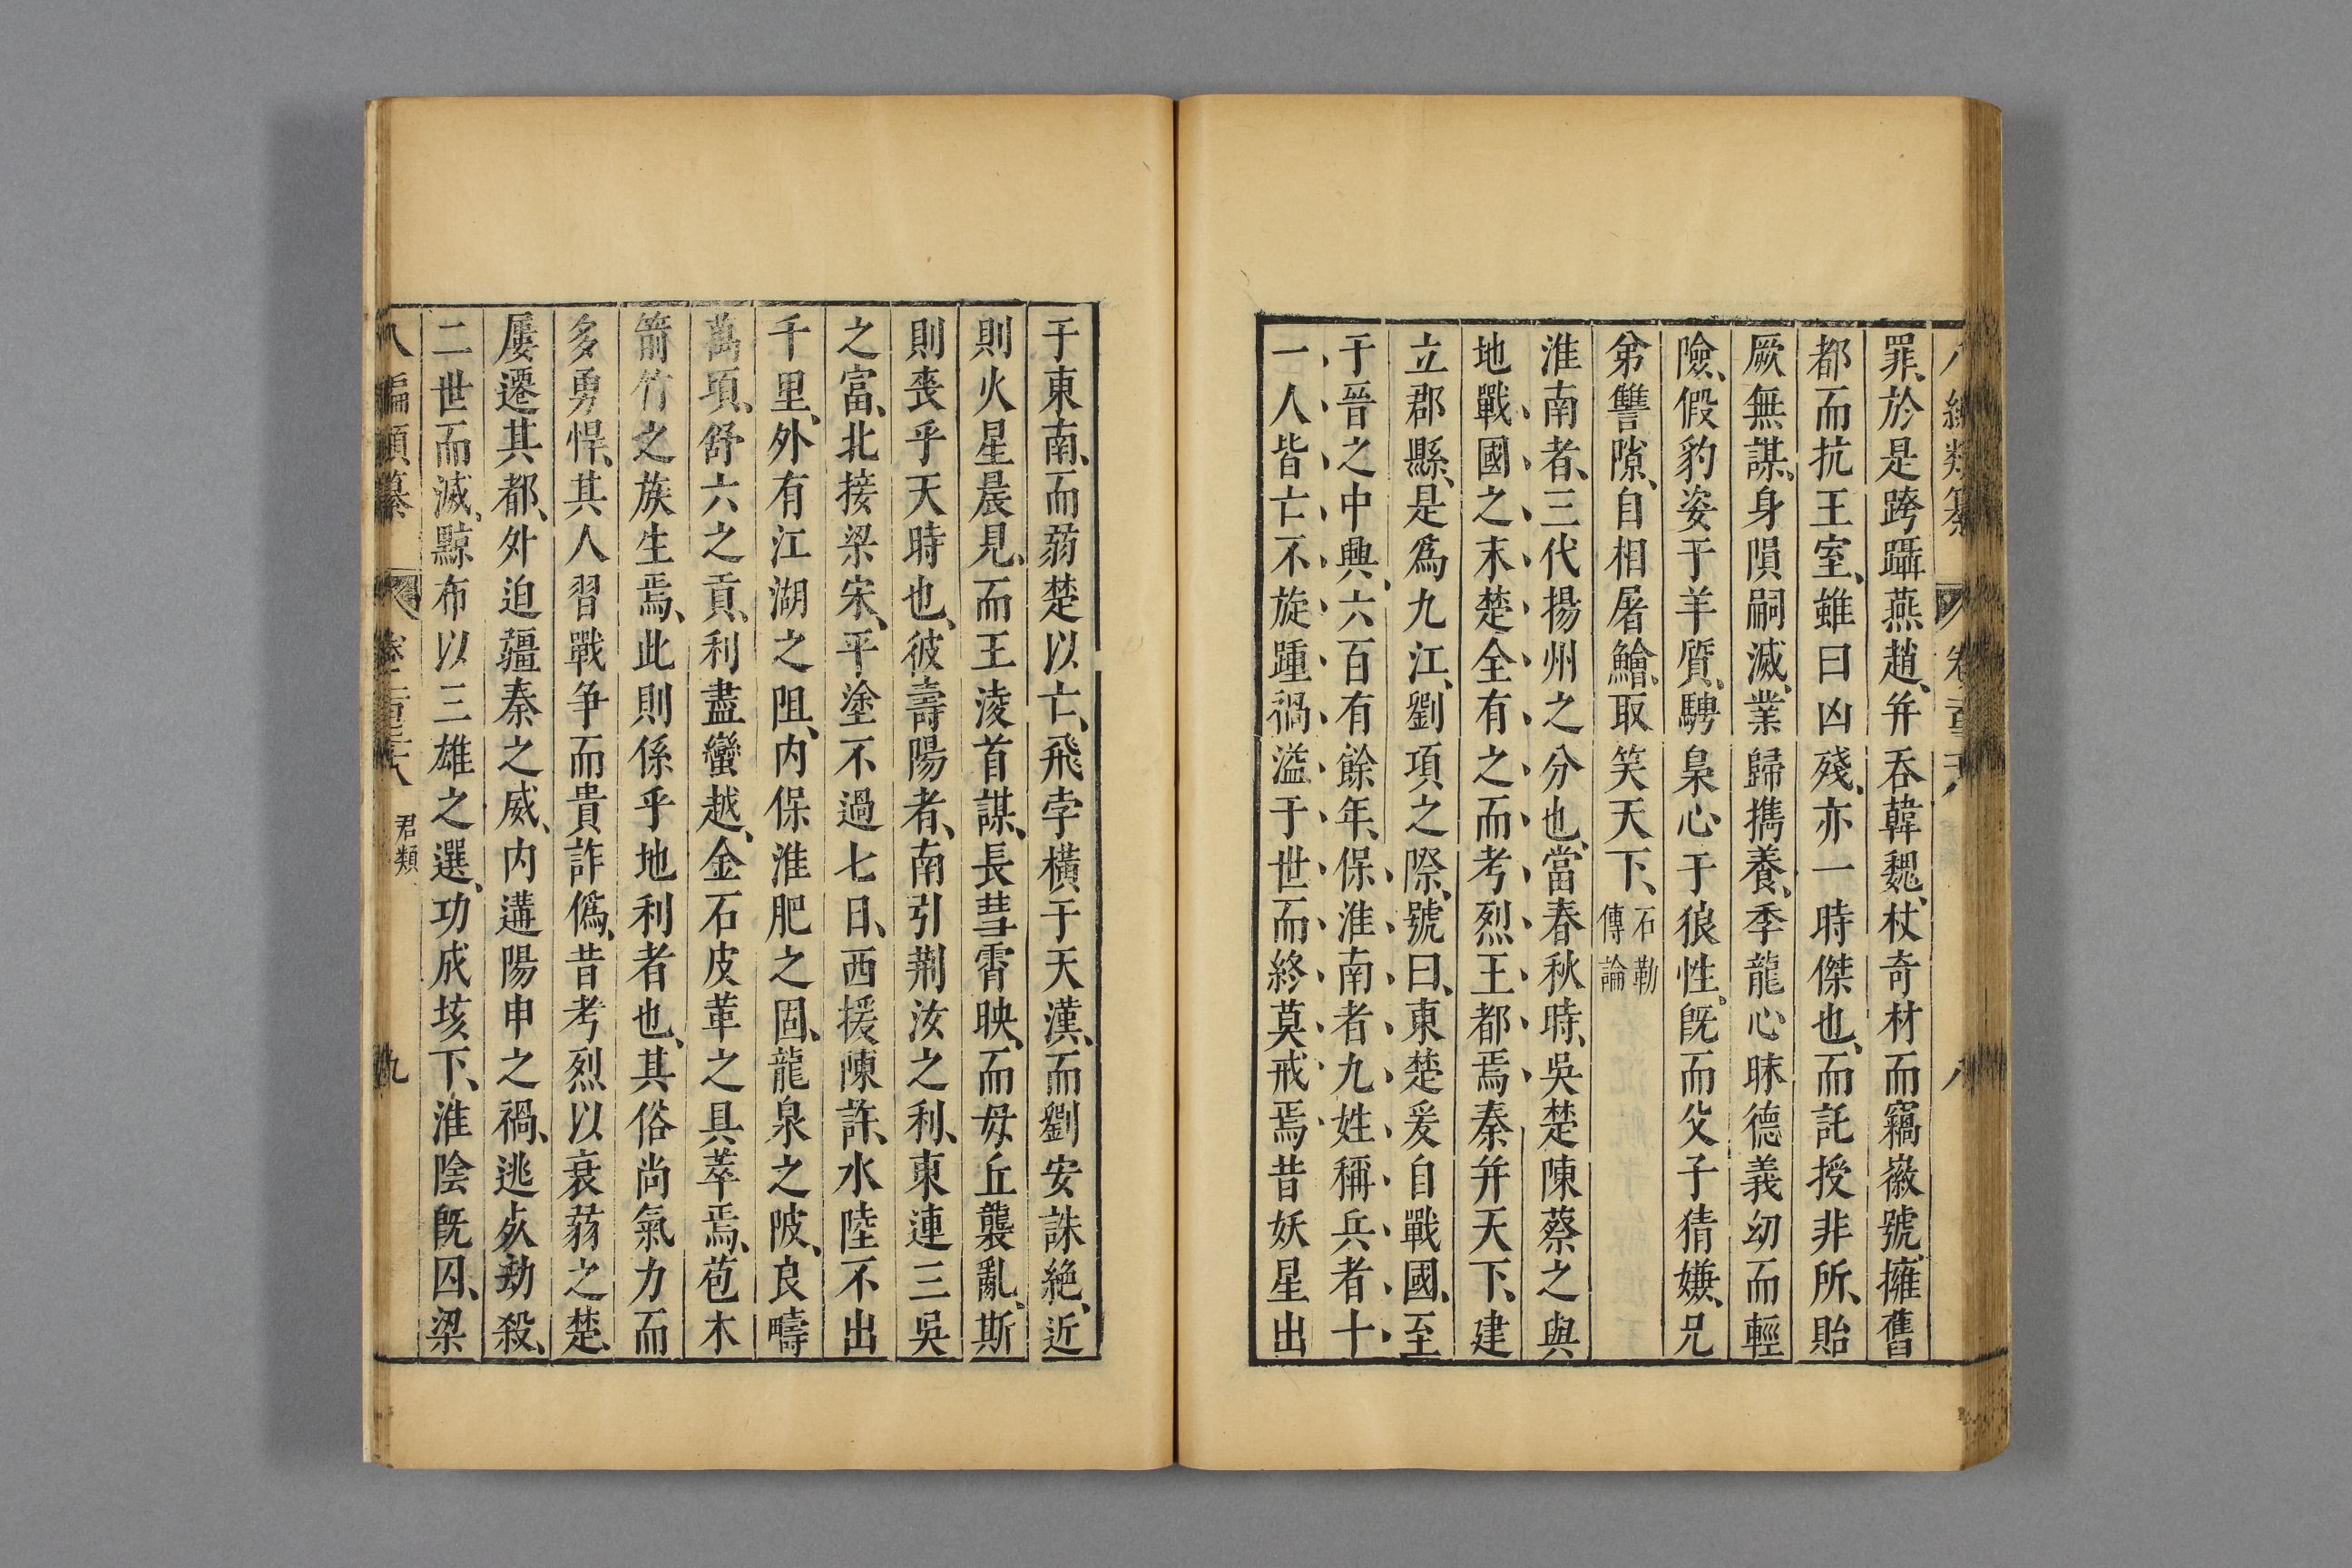 罪、於是跨躡燕趙、并吞韓魏、杖奇材而竊徽號、擁舊
都而抗王室、雖曰凶殘、亦一時傑也、而託授非所、貽
厥無謀、身隕嗣滅、業歸擕養、季龍心昧德義、幼而輕
險、假豹姿于羊質、騁梟心于狼性、旣而父子猜嫌、兄
弟讐隙、自相屠鱠、取笑天下、石勒傳論
淮南者、三代揚州之分也、當春秋時、吳楚陳蔡之與
地、戰國之末、楚全有之、而考烈王都焉、秦并天下、建
立郡縣、是爲九江、劉項之際、號曰東楚、爰自戰國、至
于晉之中興、六百有餘年、保淮南者九姓、稱兵者十
一人、皆亡不旋踵、禍溢于世、而終莫戒焉、昔妖星出
于東南、而弱楚以亡、飛孛橫于天漢、而劉安誅絕、近
則火星晨見、而王淩首謀、長彗霄映、而毋丘襲亂、斯
則喪乎天時也、彼壽陽者、南引荆汝之利、東連三吳
之富、北接梁宋、平塗不過七日、西援陳許、水陸不出
千里、外有江湖之阻、内保淮肥之固、龍泉之陂、良疇
萬頃、舒六之貢、利盡蠻越、金石皮革之具萃焉、苞木
箭竹之族生焉、此則係乎地利者也、其俗尚氣力而
多勇悍、其人習戰争而貴詐僞、昔考烈以衰弱之楚、
屢遷其都、外迫疆秦之威、内遘陽申之禍、逃死劫殺、
二世而滅、黥布以三雄之選、功成垓下、淮陰旣囚、梁
八編類纂 卷 君類 九